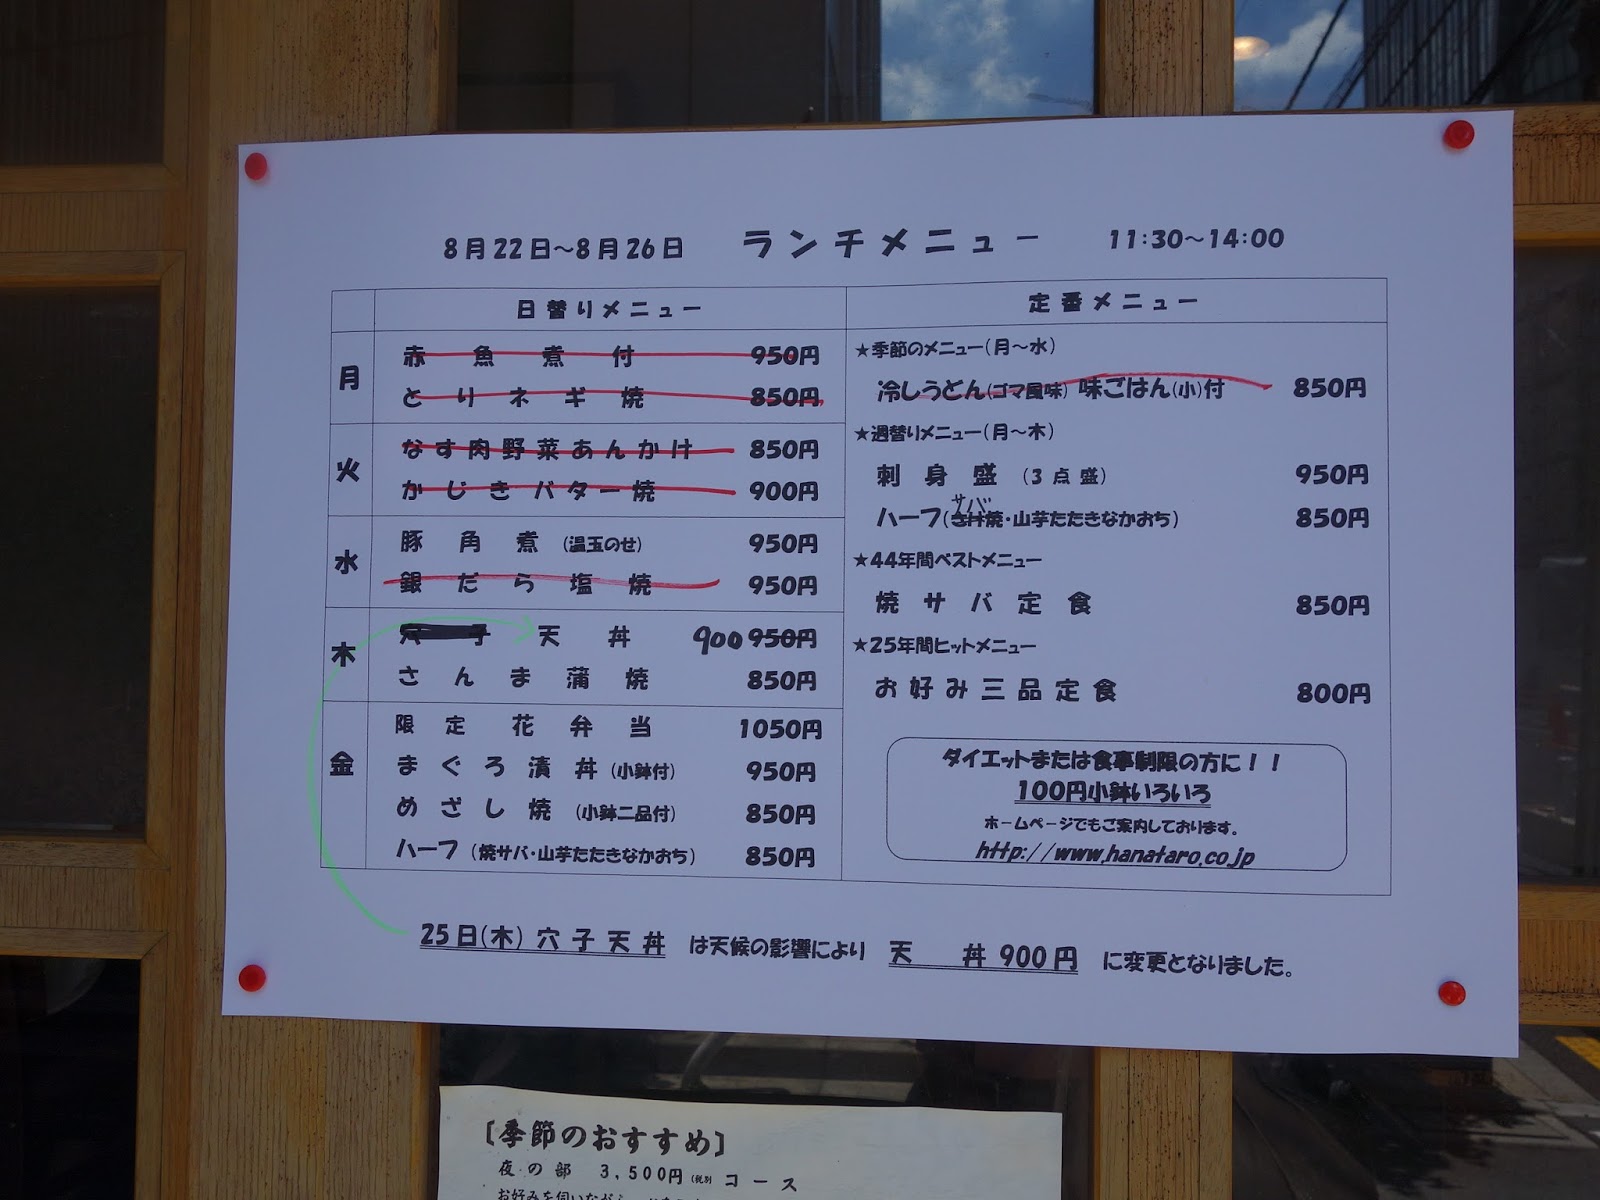 8月22日～8月26日 ランチメニュー 11:30～14:00
日替りメニュー
月
赤魚煮付 950円
とりネギ焼 850円
火
なす肉野菜あんかけ 850円
かじきバター焼 900円
水
豚角煮 (温玉のせ) 950円
銀だら塩焼 950円
木
穴子天丼 900 950円
さんま蒲焼 850円
金
限定 花弁当 1050円
まぐろ漬丼 (小鉢付) 950円
めざし焼 (小鉢二品付) 850円
ハーフ (焼サバ・山芋たたきなかおち) 850円
定番メニュー
★季節のメニュー(月～水)
冷しうどん(ゴマ風味) 味ごはん(小)付 850円
★週替りメニュー(月～木)
刺身盛 (3点盛) 950円
サバ
ハーフ(さけ焼・山芋たたきなかおち) 850円
★44年間ベストメニュー
焼サバ定食 850円
★25年間ヒットメニュー
お好み三品定食 800円
ダイエットまたは食事制限の方に！！
100円小鉢いろいろ
ホームページでもご案内しております。
http://www.hanataro.co.jp
25日(木) 穴子天丼 は天候の影響により 天 丼 900円 に変更となりました。
〔季節のおすすめ〕
夜の部 3,500円(税別) コース
お好みを伺いながら